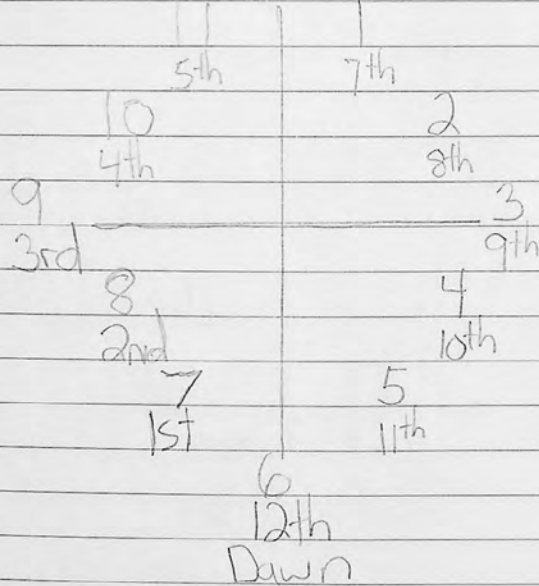 11 1
5th 7th
10 2
4th 8th
9 3
3rd 9th
8 4
2nd 10th
7 5
1st 11th
6
12th
Dawn